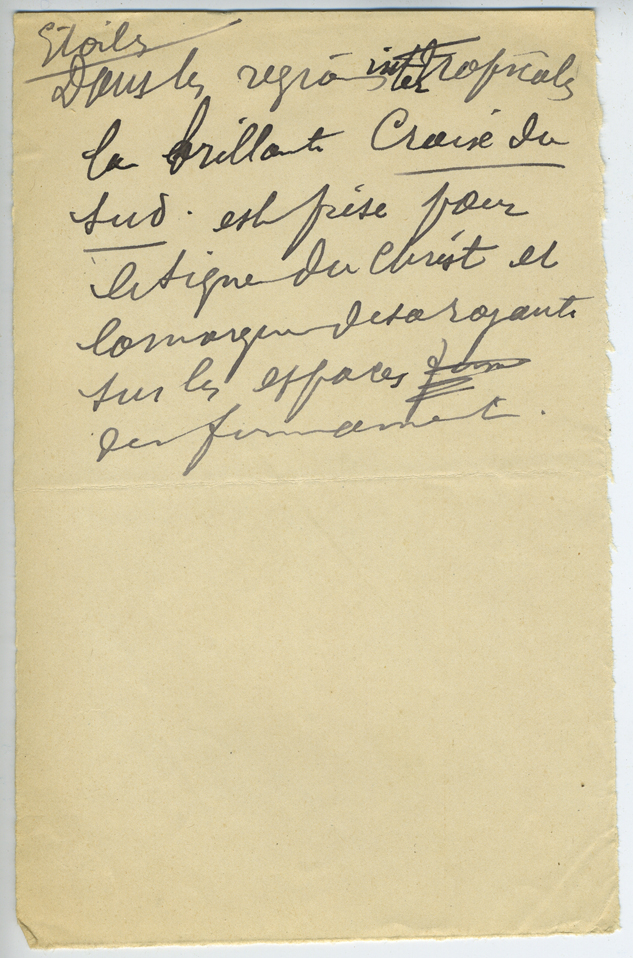 Etoiles
Dans les regions intertropicales
la brillante Croix du
sud. est prise pour
le signe du Christ et
la marque
sur les espaces
du firmament.